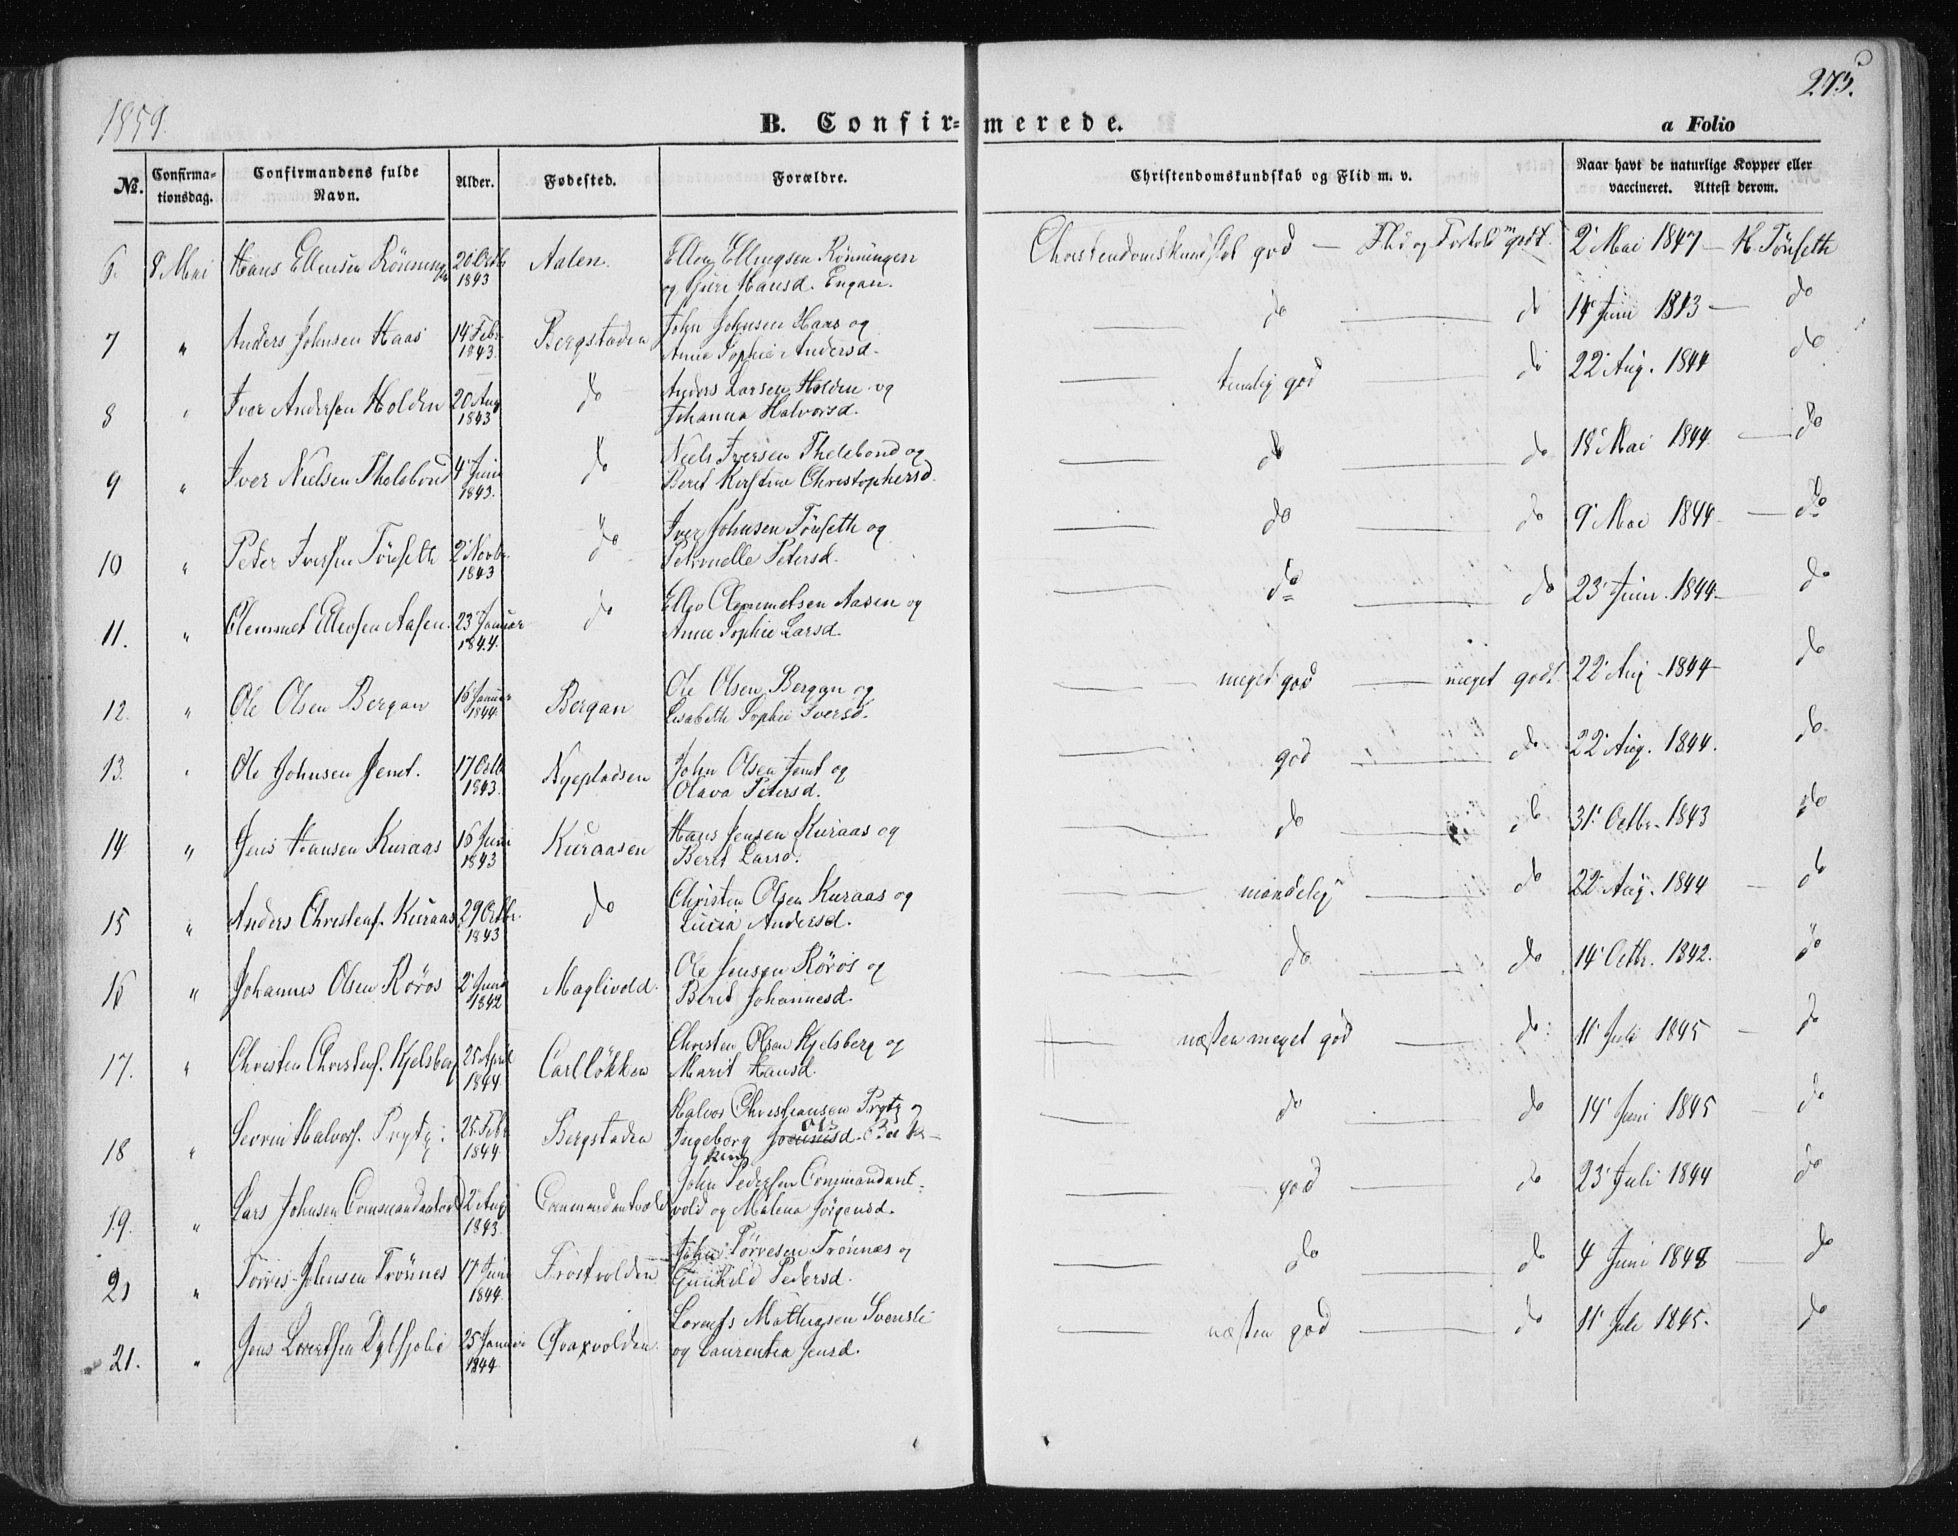 1859.
273.
B. Confir=merede.
a Folio
No.
Confirma-tionsdag.
Confirmandens fulde Navn.
Alder.
Fødested.
Forældre.
Christendomskundskab og Flid m. v.
Naar havt de naturlige Kopper eller vaccineret. Attest derom.
6. 8 Mai Hans Ellensen Rönningen 20 Octb 1843 Aalen. Ellen Ellingsen Rönningen
og Guri Hansd. Engan. Christendomskundskab god — Flid og Forhold godt. 2' Mai 1847 — H. Tönseth
7 " Anders Johnsen Haas 14' Febr. 1843. Bergstaden John Johnsen Haas og
Anne Sophie Andersd. do do 14' Juni 1843 — do
8 " Iver Andersen Holden 20 Aug 1843 do Anders Larsen Holden og
Johanna Halvorsd. temelig god do 22' Aug. 1844 do
9 " Iver Nielsen Thelebond 4' Juni 1843. do Niels Iversen Thelebond og
Berit Kirstine Christophersd. do do 18' Mai 1844. — do
10 " Peter Iversen Tönseth 2' Novbr. 1843 do Iver Johnsen Tönseth og
Petronelle Petersd. do do 9' Mai 1844 — do
11. " Clemmet Ellevsen Aasen. 23' Januar 1844. do Ellev Clemmetsen Aasen og
Anne Sophie Larsd. do do 23' Juni 1844 — do
12. " Ole Olsen Bergan 16 Januar 1844. Bergan Ole Olsen Bergan og
Lisabeth Sophie Iversd. meget god meget godt. 22' Aug. 1844 do
13. " Ole Johnsen Jemt. 17 Octb 1843. Nyepladsen John Olsen Jemt og
Olava Petersd. god do 22' Aug. 1844. do
14 " Jens Hansen Kuraas 16 Juni 1843 Kuraasen Hans Jensen Kuraas og
Berit Larsd. do do 31' Octbr. 1843 do
15 " Anders Christens. Kuraas 29 Octbr. 1843 do Christen Olsen Kuraas og
Lucia Andersd. maadelig do 22' Aug. 1844 — do
16 " Johannes Olsen Röros 2' Juni 1842 Maglivold. Ole Jensen Röros og
Berit Johannesd. do do 14' Octbr. 1842. do
17. " Christen Christens. Kjelsberg 25 April 1844 Carllökken Christen Olsen Kjelsberg og
Marit Hansd. næsten meget god do 11' Juli 1845 — do
18 " Halvors. Prytz. 25 Febr 1844 Bergstaden Halvor Christiansen Prytz og
Ingeborg Olsd. do do 14' Juni 1845 — do
19. " Lars Johnsen Commandantvold 2' Aug 1843. Commandantvold John Pedersen Commandant=
vold og Malena Jörgensd. god do 23' Juli 1844 do
20 " Torres Johnsen Trönnes 17 Juni 1844. Frostvolden John Torresen Trönnæs og
Gunhild Pedersd. do do 4 Juni 1848 — do
21. " Jens 25 Januar 1844 Qvaxvolden Mathisen Svensli
og Laurentia Jensd. næsten god do 11' Juli 1845. do